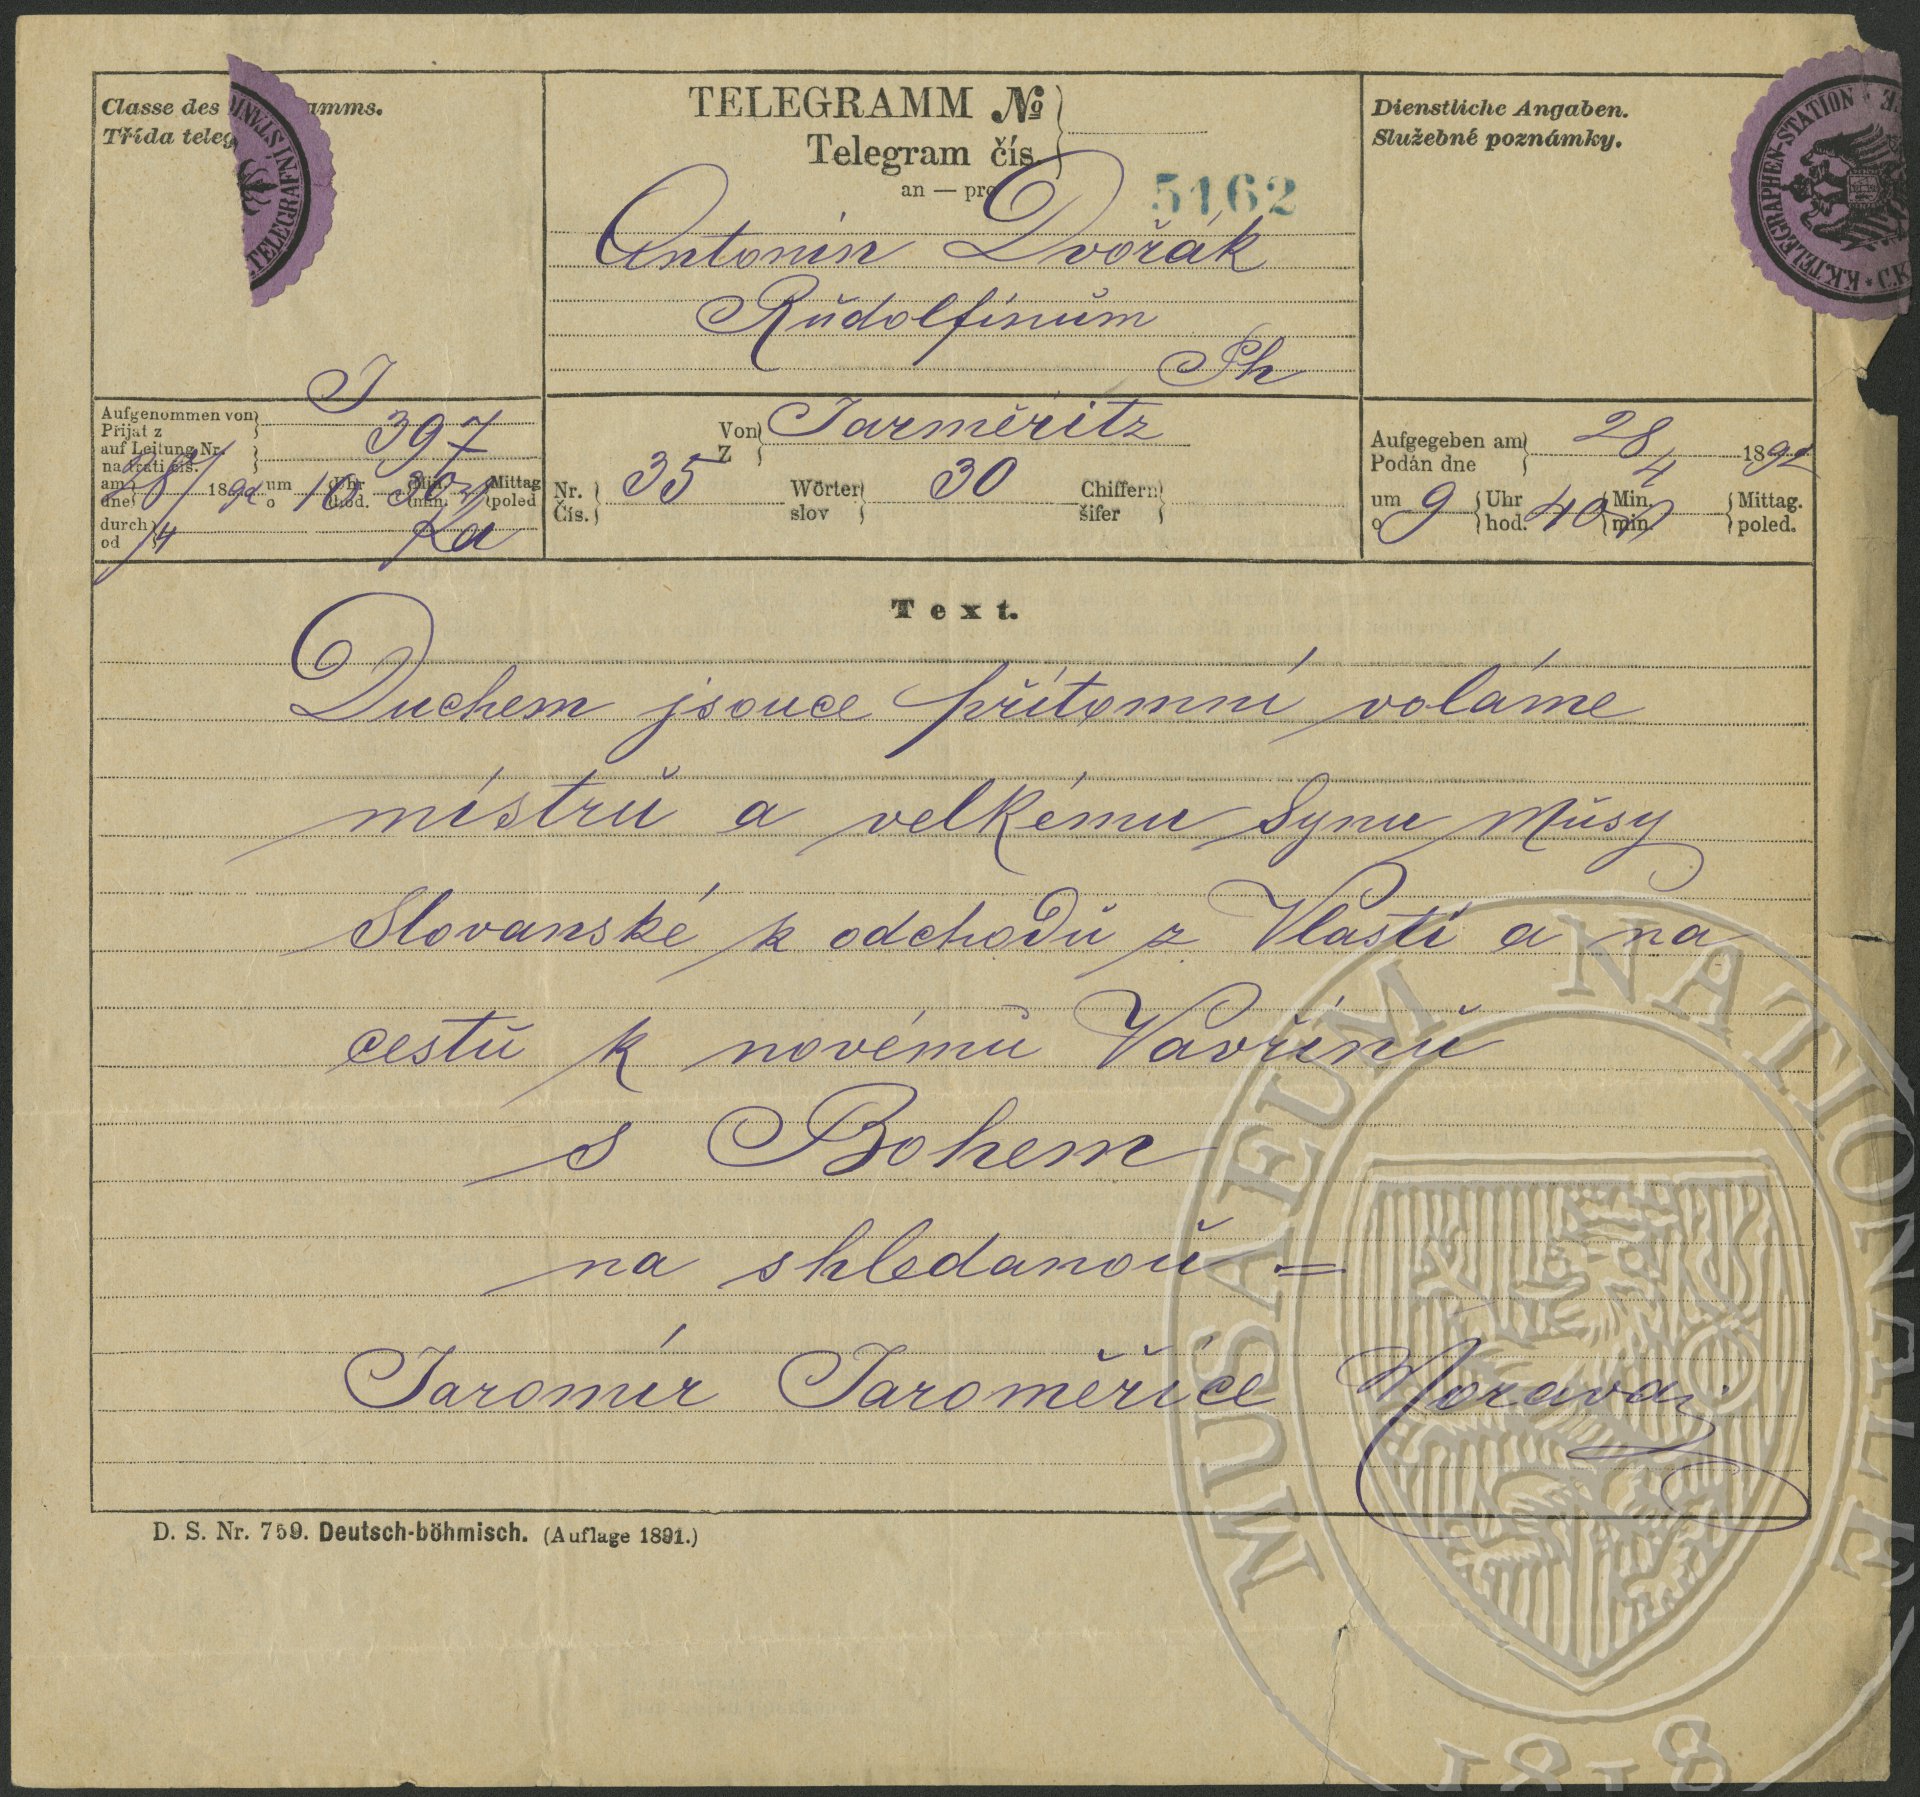 Classe des amms.
Třída teleg
TELEGRAMM №
Telegram čís.
an — pro
5162
Dienstliche Angaben.
Služebné poznámky.
K.K. TELEGRAPHEN-STATION
Antonín Dvořák
Rŭdolfinŭm
Ph
Aufgenommen von
Prijat z
auf Leitung Nr. 397
na trati čís.
am 28/4 1892 um 10 Uhr 30 Min. Mittag
dne o hod. min. poled
durch
od
Von Jarměritz
Z
Nr. 35 Wörter 30 Chiffern
Čís. slov šifer
Aufgegeben am 28/4 1892
Podán dne
um 9 Uhr 40 Min. Mittag.
o hod. min. poled.
Text.
Duchem jsouce přítomni voláme
mistrŭ a velkému Synu Mŭsy
Slovanské k odchodŭ z Vlasti a na
cestŭ k novémŭ Vavřínŭ
s Bohem
na shledanoŭ =
Jaromír Jaroměřice Morava
D. S. Nr. 759. Deutsch-böhmisch. (Auflage 1891.)
MUSAEUM NATIONALE
1818